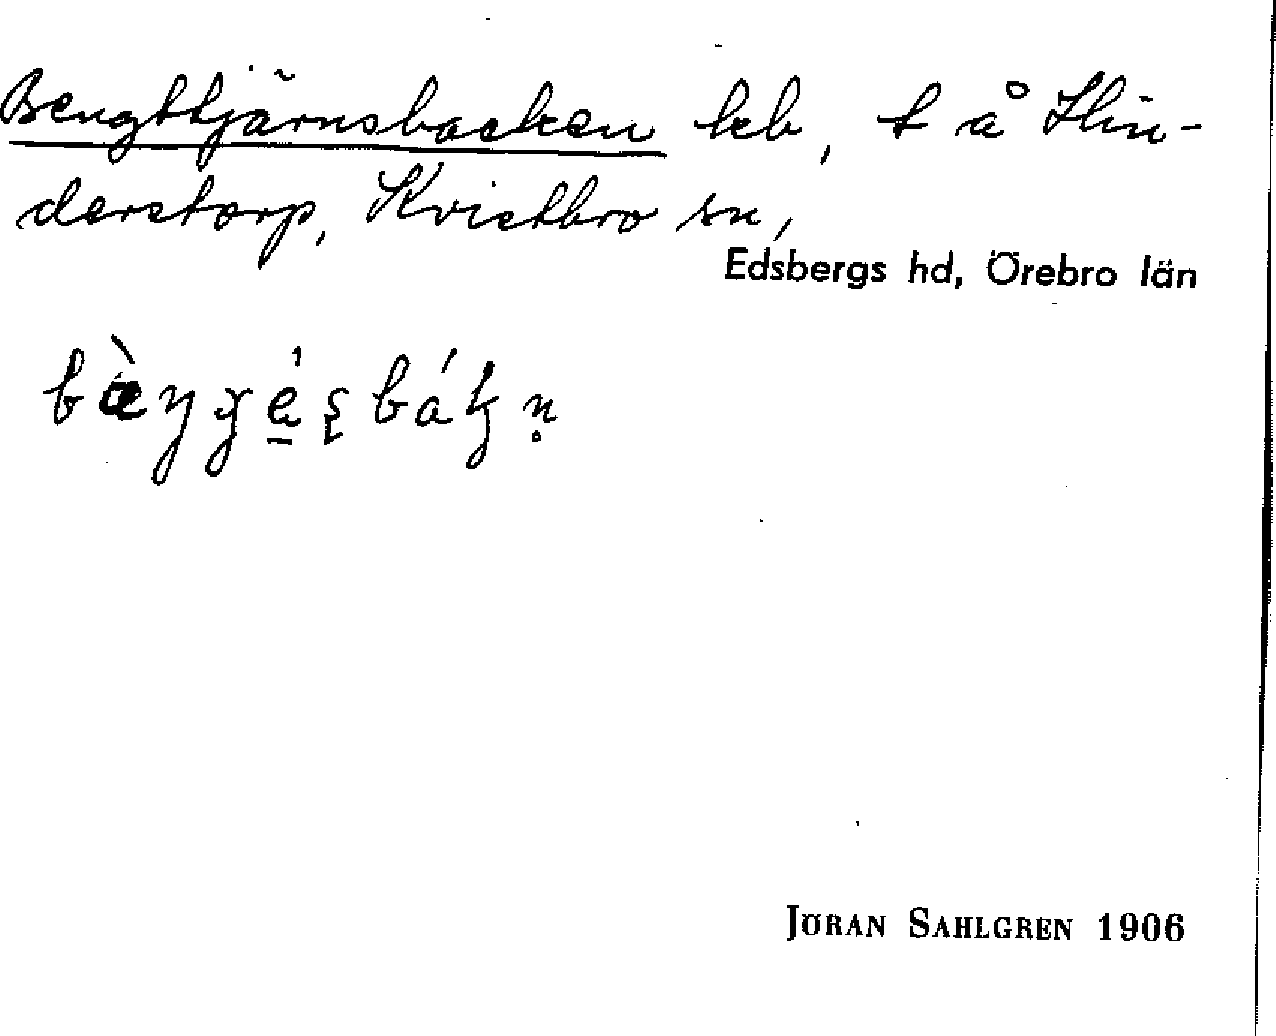 Bengttjärnsbacken lcb, t å Hin-
derstorp, Kvistbro sn,
Edsbergs hd, Örebro län
JÖRAN SAHLGREN 1906